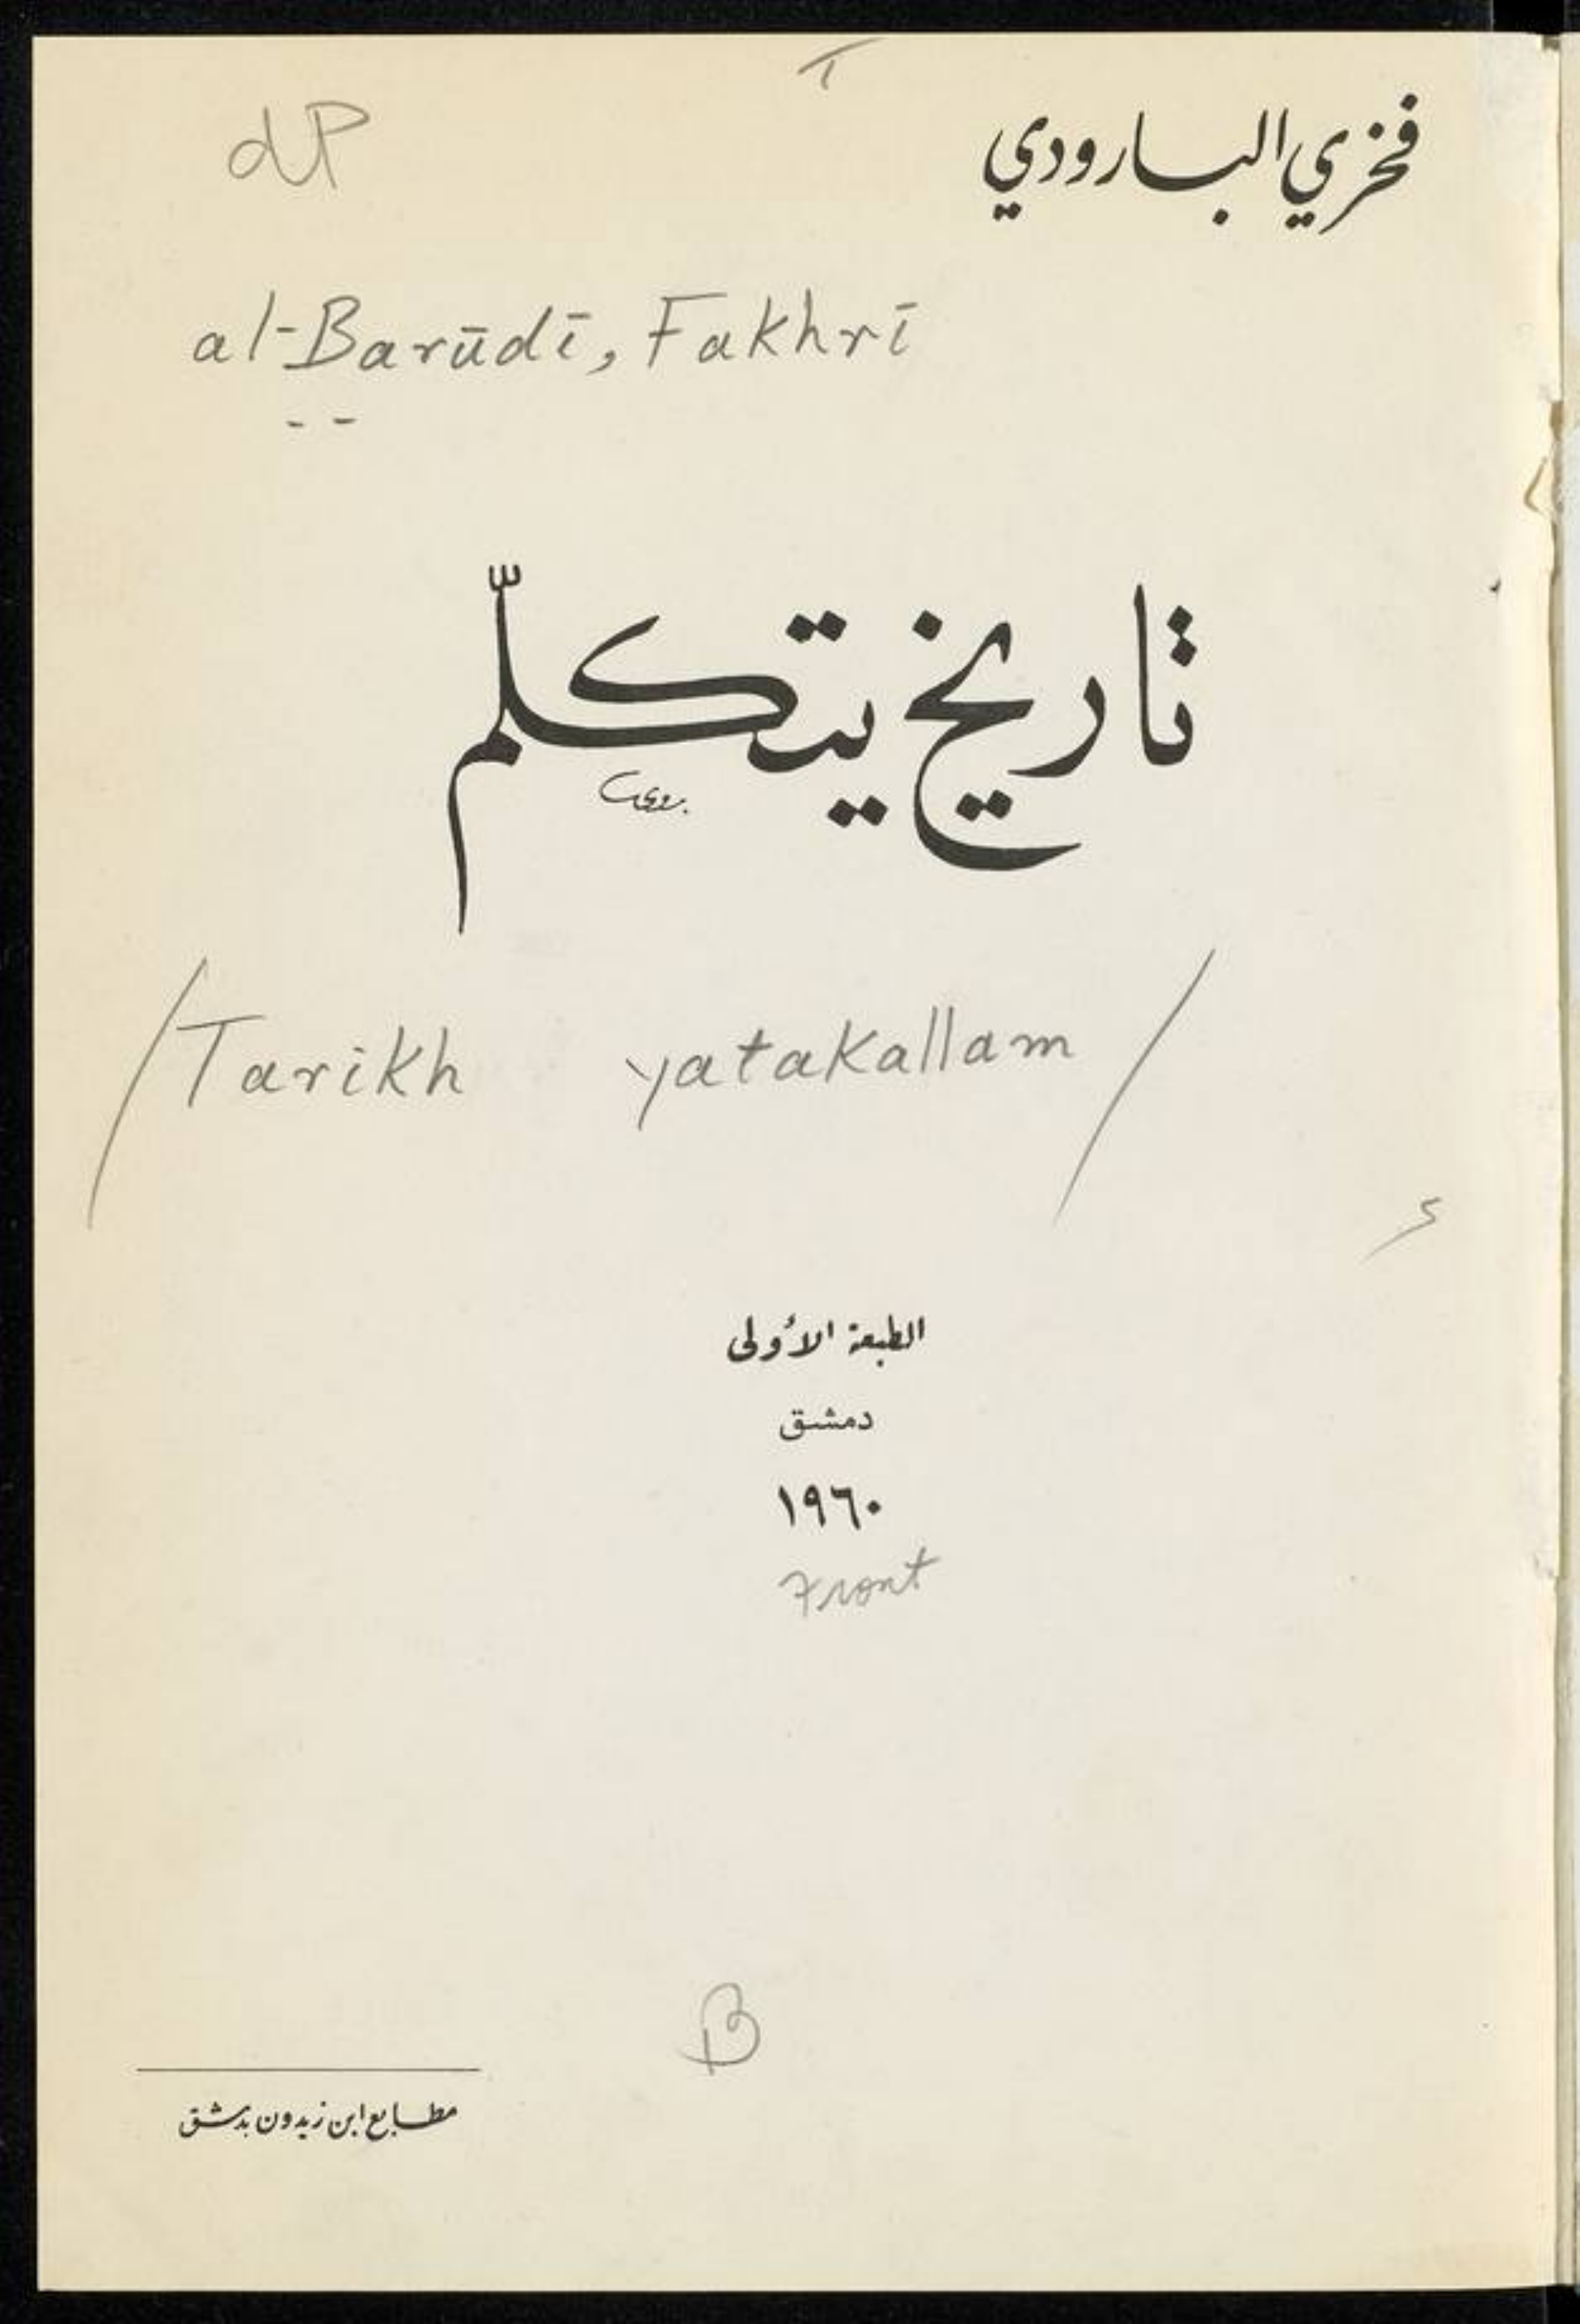 فخري البارودي
al-Barūdī, Fakhrī
تاريخ يتكلّم
بدوي
/Tarikh yatakallam/
الطبعة الأولى
دمشق
١٩٦٠
Front
B
مطابع ابن زيدون بدمشق